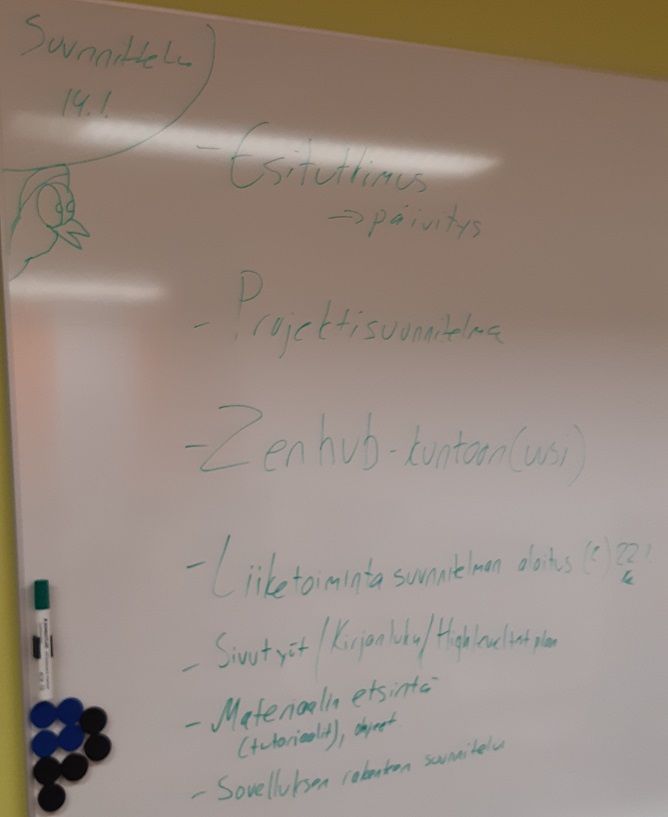 Suunnittelu
14.1.
- Esitutkimus
→ päivitys
- Projektisuunnitelma
- Zenhub - kuntoon (uusi)
- Liiketoimintasuunnitelman aloitus
- Sivutyöt / Kirjanluku /
- Materiaalin etsintä
(tutoriaalit), ohjeet
- Sovelluksen rakenteen suunnittelu